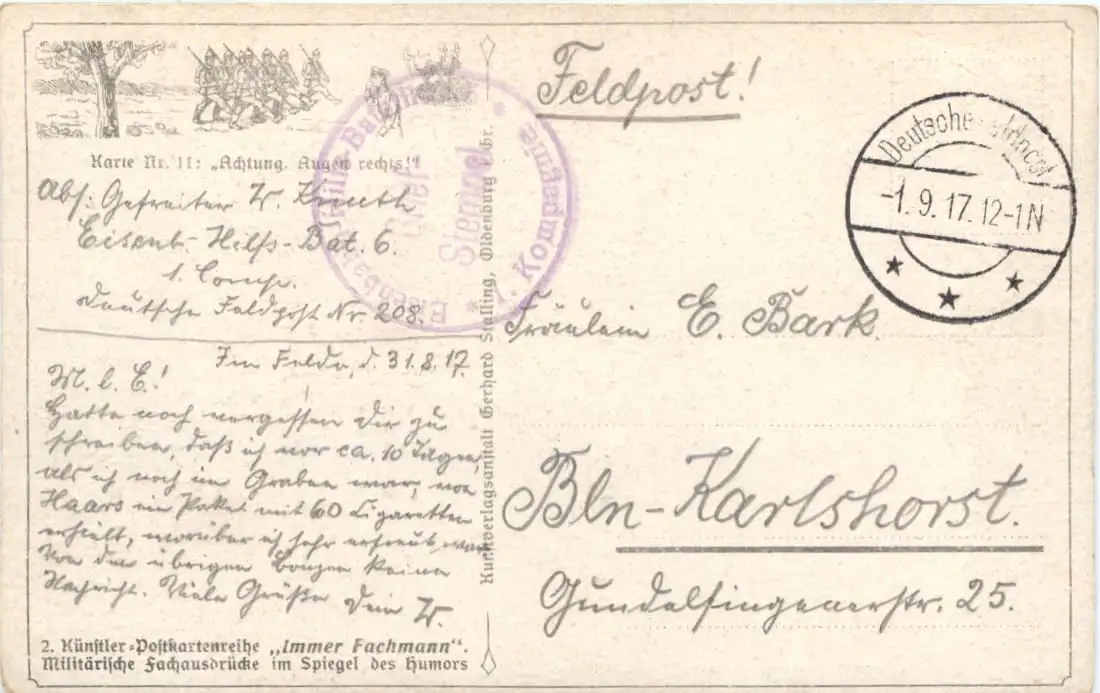 Karte Nr. 11: „Achtung, Augen rechts!"
Abs: Gefreiter W. Knuth
Eisenb.-Hilfs-Bat. 6.
1. Comp.
Deutsche Feldpost Nr. 208.
Im Felde, d. 31.8.17.
M. l. E.!
Hatte noch vergessen Dir zu
schreiben, daß ich vor ca. 10 Tagen,
als ich noch im Graben war, von
Haars ein Paket mit 60 Cigaretten
erhielt, worüber ich sehr erfreut war.
Von den übrigen Bonzen keine
Nachricht. Viele Grüße Dein W.
2. Künstler-Postkartenreihe „Immer Fachmann".
Militärische Fachausdrücke im Spiegel des Humors
Kunstverlagsanstalt Gerhard Stalling, Oldenburg i. Gr.
Brief
Stempel
1. Kompagnie
Feldpost!
Deutsche Feldpost
-1.9.17.12-1N
Fräulein E. Bark.
Bln-Karlshorst.
Gundelfingenerstr. 25.